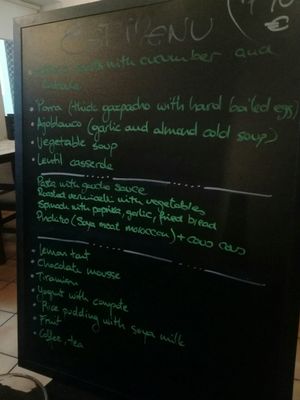 MENU
€
with cucumber and
• Porra (thick gazpacho with hard boiled egg)
• Ajoblanco (garlic and almond cold soup)
• Vegetable soup
• Lentil casserole
Pasta with gaucho sauce
Roasted vermicelli with vegetables
Spinach with paprika, garlic, fried bread
Pinchito (Soya meat moroccon) + cous cous
• Lemon tart
• Chocolate mousse
• Tiramisu
• Yogurt with compote
• Rice pudding with soya milk
• Fruit
• Coffee, tea